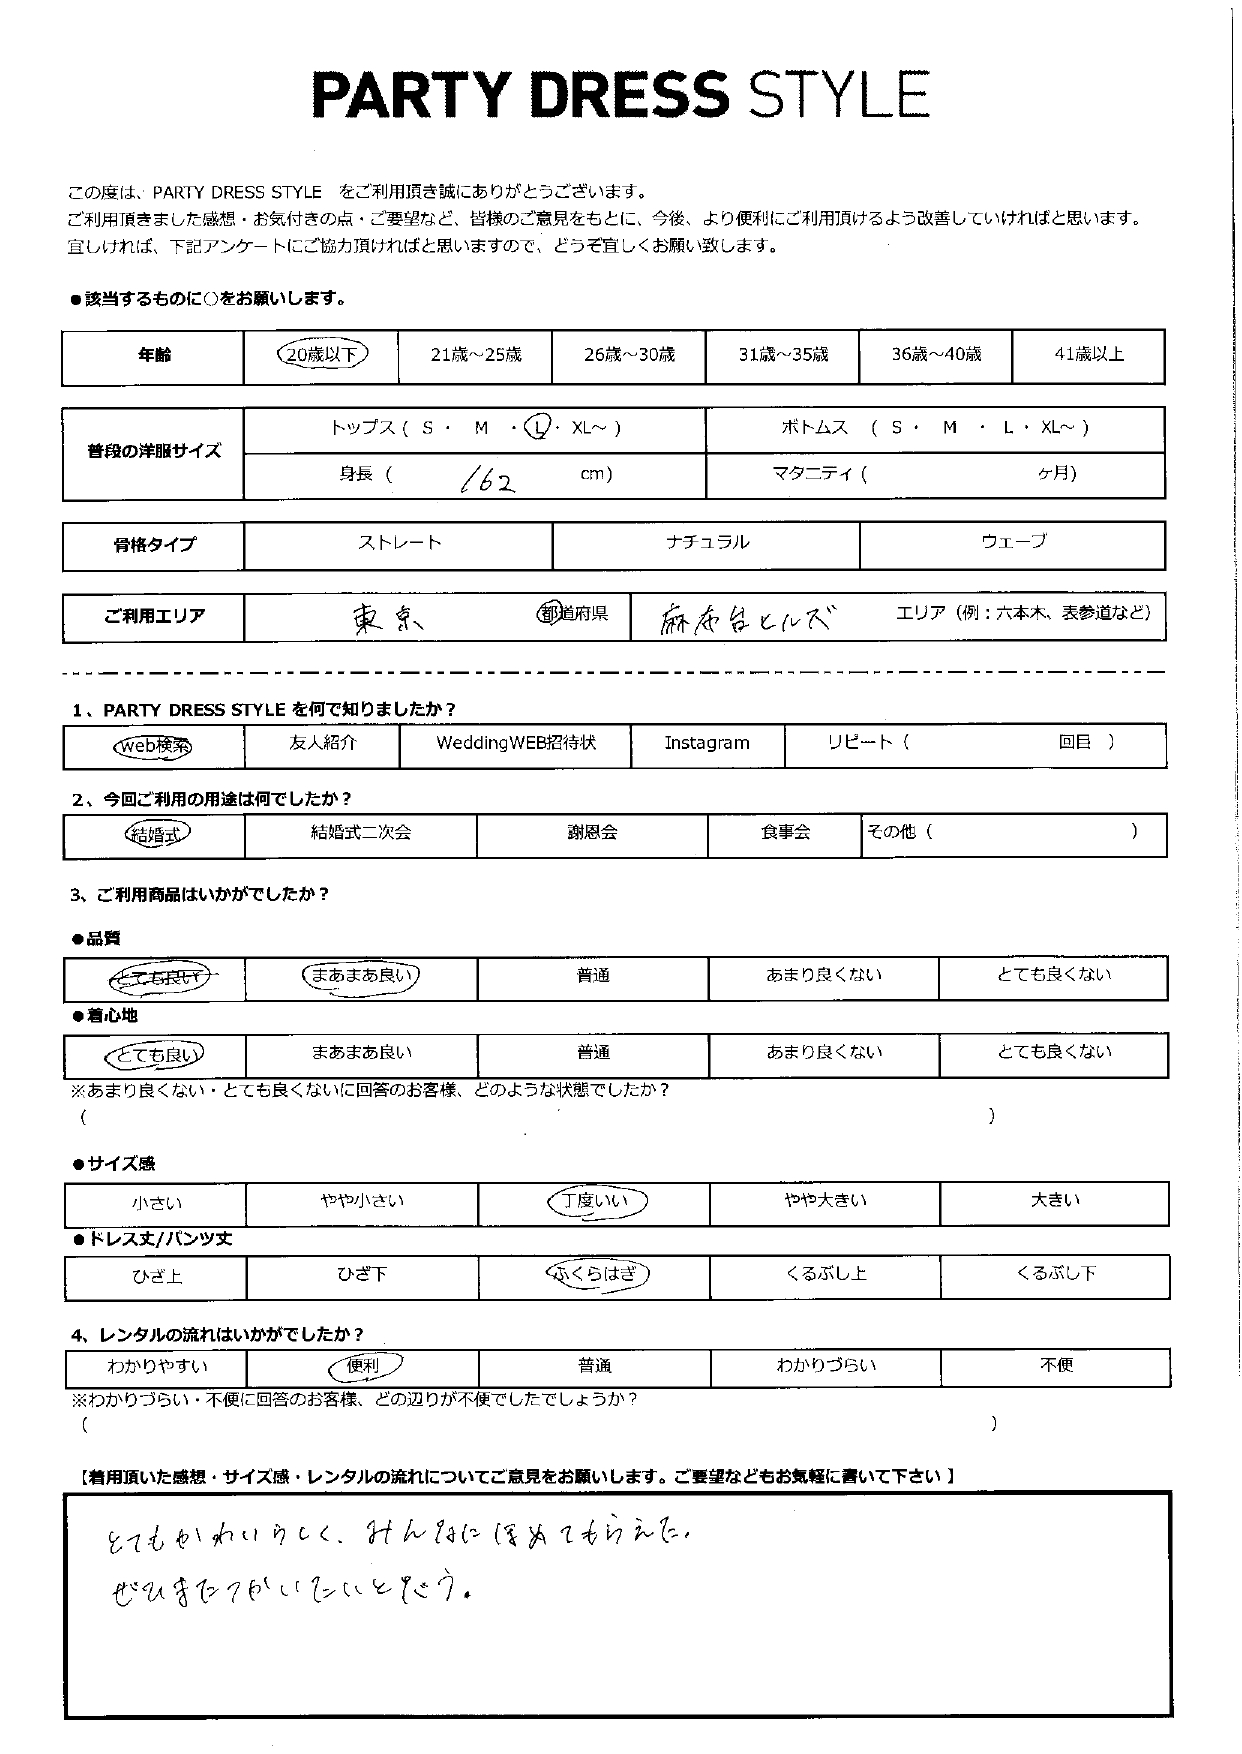 PARTY DRESS STYLE
この度は、PARTY DRESS STYLE　をご利用頂き誠にありがとうございます。
ご利用頂きました感想・お気付きの点・ご要望など、皆様のご意見をもとに、今後、より便利にご利用頂けるよう改善していければと思います。
宜しければ、下記アンケートにご協力頂ければと思いますので、どうぞ宜しくお願い致します。
●該当するものに○をお願いします。
年齢 20歳以下 21歳～25歳 26歳～30歳 31歳～35歳 36歳～40歳 41歳以上
普段の洋服サイズ トップス ( S ・ M ・ L ・ XL～ ) ボトムス ( S ・ M ・ L ・ XL～ )
身長 ( 162 cm) マタニティ ( ヶ月)
骨格タイプ ストレート ナチュラル ウェーブ
ご利用エリア 東京 都道府県 麻布台ヒルズ エリア（例：六本木、表参道など）
1、PARTY DRESS STYLE を何で知りましたか？
web検索 友人紹介 WeddingWEB招待状 Instagram リピート（ 回目 ）
2、今回ご利用の用途は何でしたか？
結婚式 結婚式二次会 謝恩会 食事会 その他（ ）
3、ご利用商品はいかがでしたか？
●品質
とても良い まあまあ良い 普通 あまり良くない とても良くない
●着心地
とても良い まあまあ良い 普通 あまり良くない とても良くない
※あまり良くない・とても良くないに回答のお客様、どのような状態でしたか？
（ ）
●サイズ感
小さい やや小さい 丁度いい やや大きい 大きい
●ドレス丈/パンツ丈
ひざ上 ひざ下 ふくらはぎ くるぶし上 くるぶし下
4、レンタルの流れはいかがでしたか？
わかりやすい 便利 普通 わかりづらい 不便
※わかりづらい・不便に回答のお客様、どの辺りが不便でしたでしょうか？
（ ）
【着用頂いた感想・サイズ感・レンタルの流れについてご意見をお願いします。ご要望などもお気軽に書いて下さい 】
とてもかわいらしく、みんなにほめてもらえた。
ぜひまたつかいたいと思う。